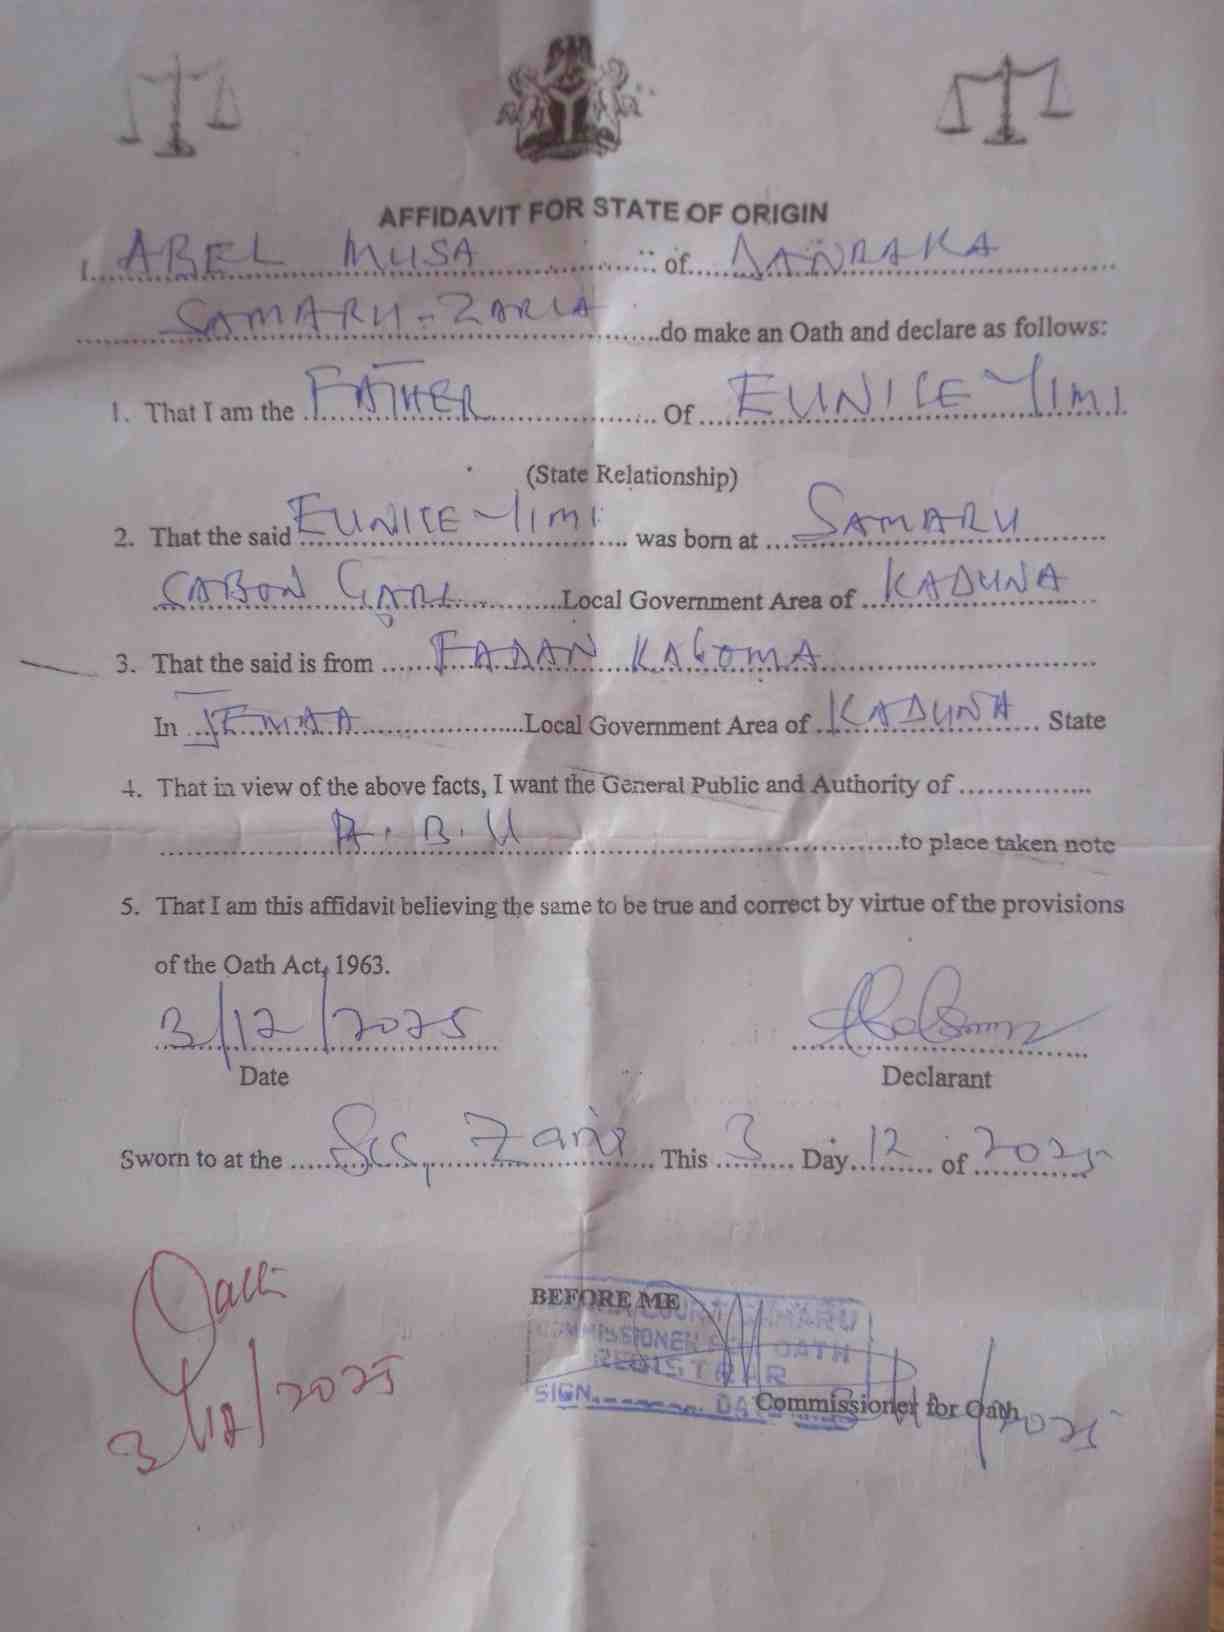 AFFIDAVIT FOR STATE OF ORIGIN
I. ABEL MUSA of DANRAKA
SAMARU - ZARIA do make an Oath and declare as follows:
1. That I am the FATHER Of EUNICE YIMI
(State Relationship)
2. That the said EUNICE YIMI was born at SAMARU
SABON GARI Local Government Area of KADUNA
3. That the said is from FADAN KAGOMA
In JEMAA Local Government Area of KADUNA State
4. That in view of the above facts, I want the General Public and Authority of
A.B.U to place taken note
5. That I am this affidavit believing the same to be true and correct by virtue of the provisions
of the Oath Act, 1963.
3/12/2025
Date Declarant
Sworn to at the Zaria This 3 Day 12 of 2025
Oath
3/12/2025
BEFORE ME
COURT SAMARU
COMMISSIONER FOR OATH
REGISTRAR
SIGN DATE
Commissioner for Oath